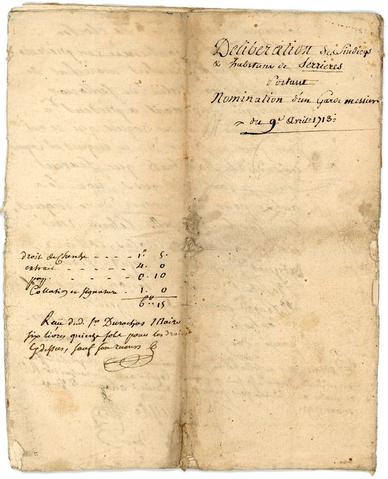 Deliberation de Sindicqs
& habitans de Serrieres
Portant
Nomination d'un Garde messier
du 9e Avril 1713
droit de - - - - 1 5
extrait - - - - 4 0
- - - - 0 10
Collation et signature - 1 0
6 15
du d. Sr Maire
six livres, quinze sols pour les droits
cydessus, sauf